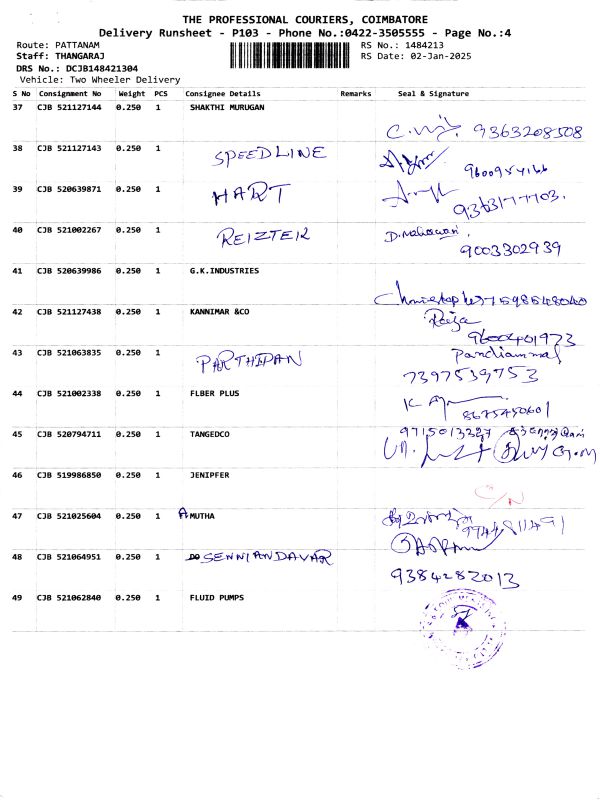 THE PROFESSIONAL COURIERS, COIMBATORE
Delivery Runsheet - P103 - Phone No.:0422-3505555 - Page No.:4
Route: PATTANAM RS No.: 1484213
Staff: THANGARAJ RS Date: 02-Jan-2025
DRS No.: DCJB148421304
Vehicle: Two Wheeler Delivery
S No Consignment No Weight PCS Consignee Details Remarks Seal & Signature
37 CJB 521127144 0.250 1 SHAKTHI MURUGAN
9363208508
38 CJB 521127143 0.250 1 SPEEDLINE
39 CJB 520639871 0.250 1 HART
40 CJB 521002267 0.250 1 REIZTER
9003302939
41 CJB 520639986 0.250 1 G.K.INDUSTRIES
42 CJB 521127438 0.250 1 KANNIMAR &CO
9600401973
43 CJB 521063835 0.250 1 PARTHIPAN Pandiammal
7397539753
44 CJB 521002338 0.250 1 FLBER PLUS
45 CJB 520794711 0.250 1 TANGEDCO
46 CJB 519986850 0.250 1 JENIPFER
C/N
47 CJB 521025604 0.250 1 AMUTHA
48 CJB 521064951 0.250 1 SENNIANDAVAR
9384282013
49 CJB 521062840 0.250 1 FLUID PUMPS